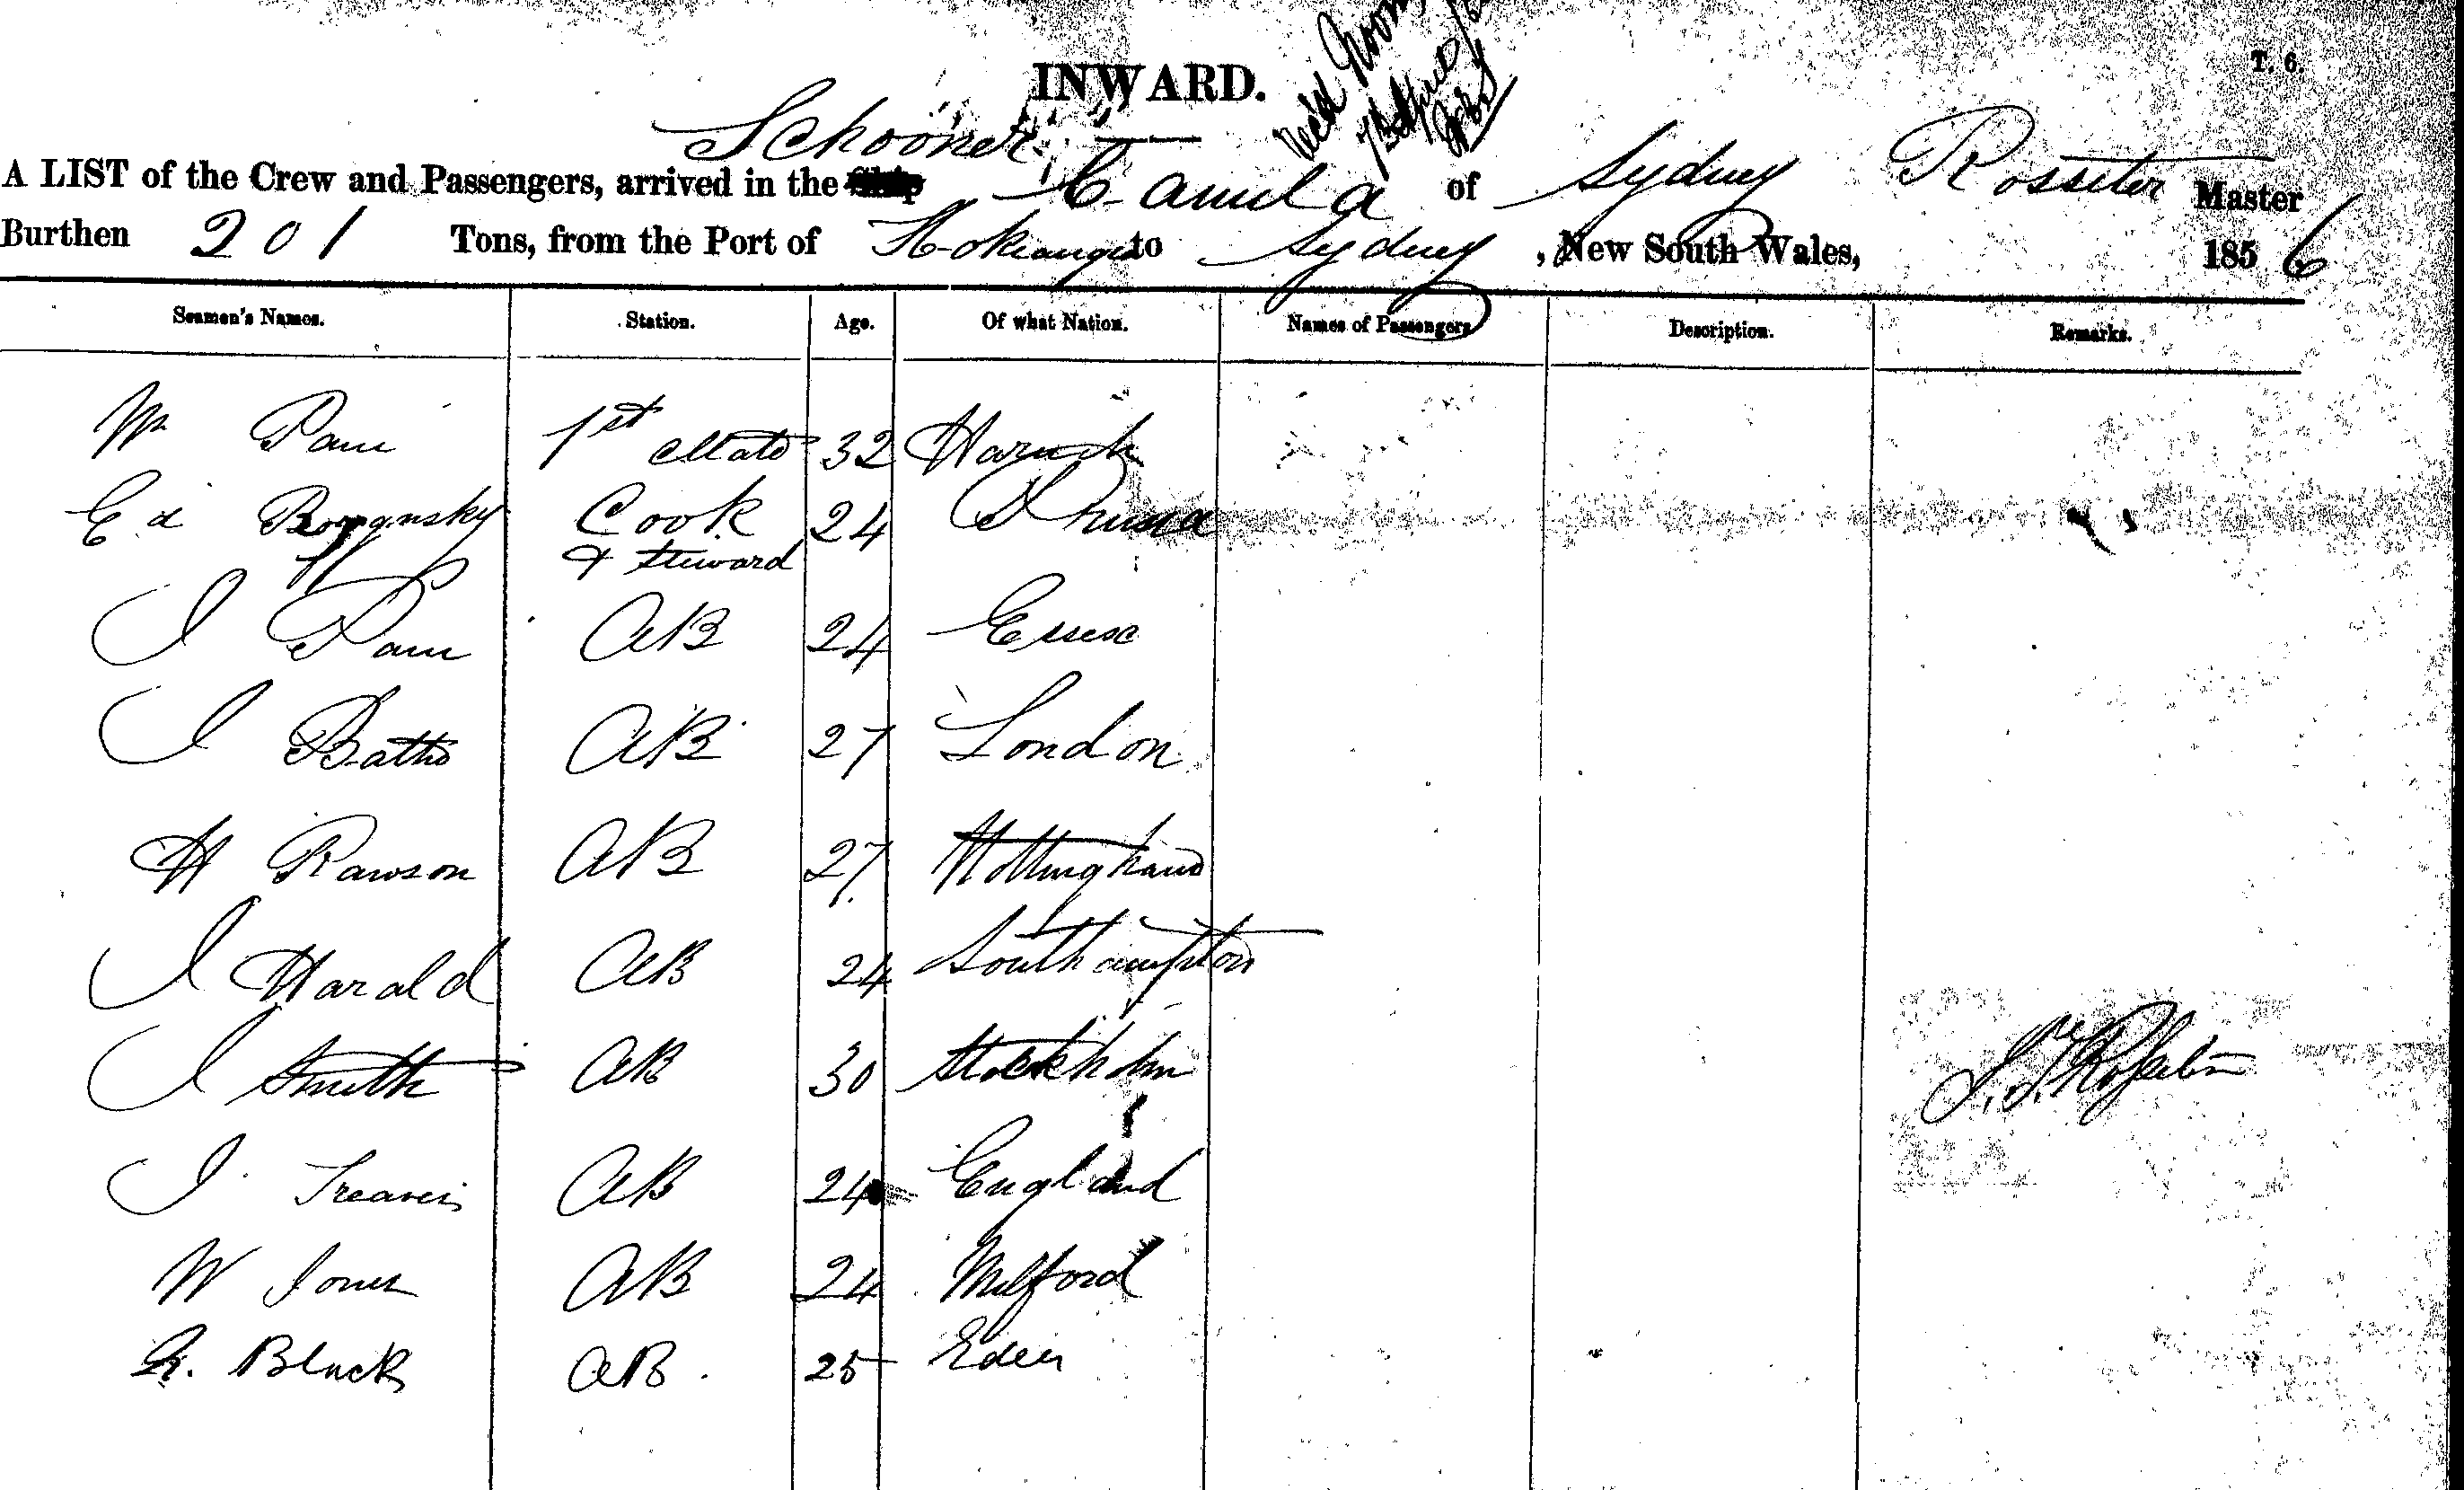 INWARD.
T. 6.
Schooner
A LIST of the Crew and Passengers, arrived in the Ship Camila of Sydney Rossiter Master
Burthen 201 Tons, from the Port of Hokianga to Sydney, New South Wales, 1856
Seamen's Names. Station. Age. Of what Nation. Names of Passengers Description. Remarks.
Wm 1st Mate 32 Harwich
Ed Cook 24 Prussia
& Steward
J AB 24 Essex
J AB 27 London
H Rawson AB 27 Nottingham
J Harald AB 24 Southampton
J Smith AB 30 Stockholm
J. Treaveis AB 24 England
W Jones AB 24 Milford
Black AB. 25 Eden